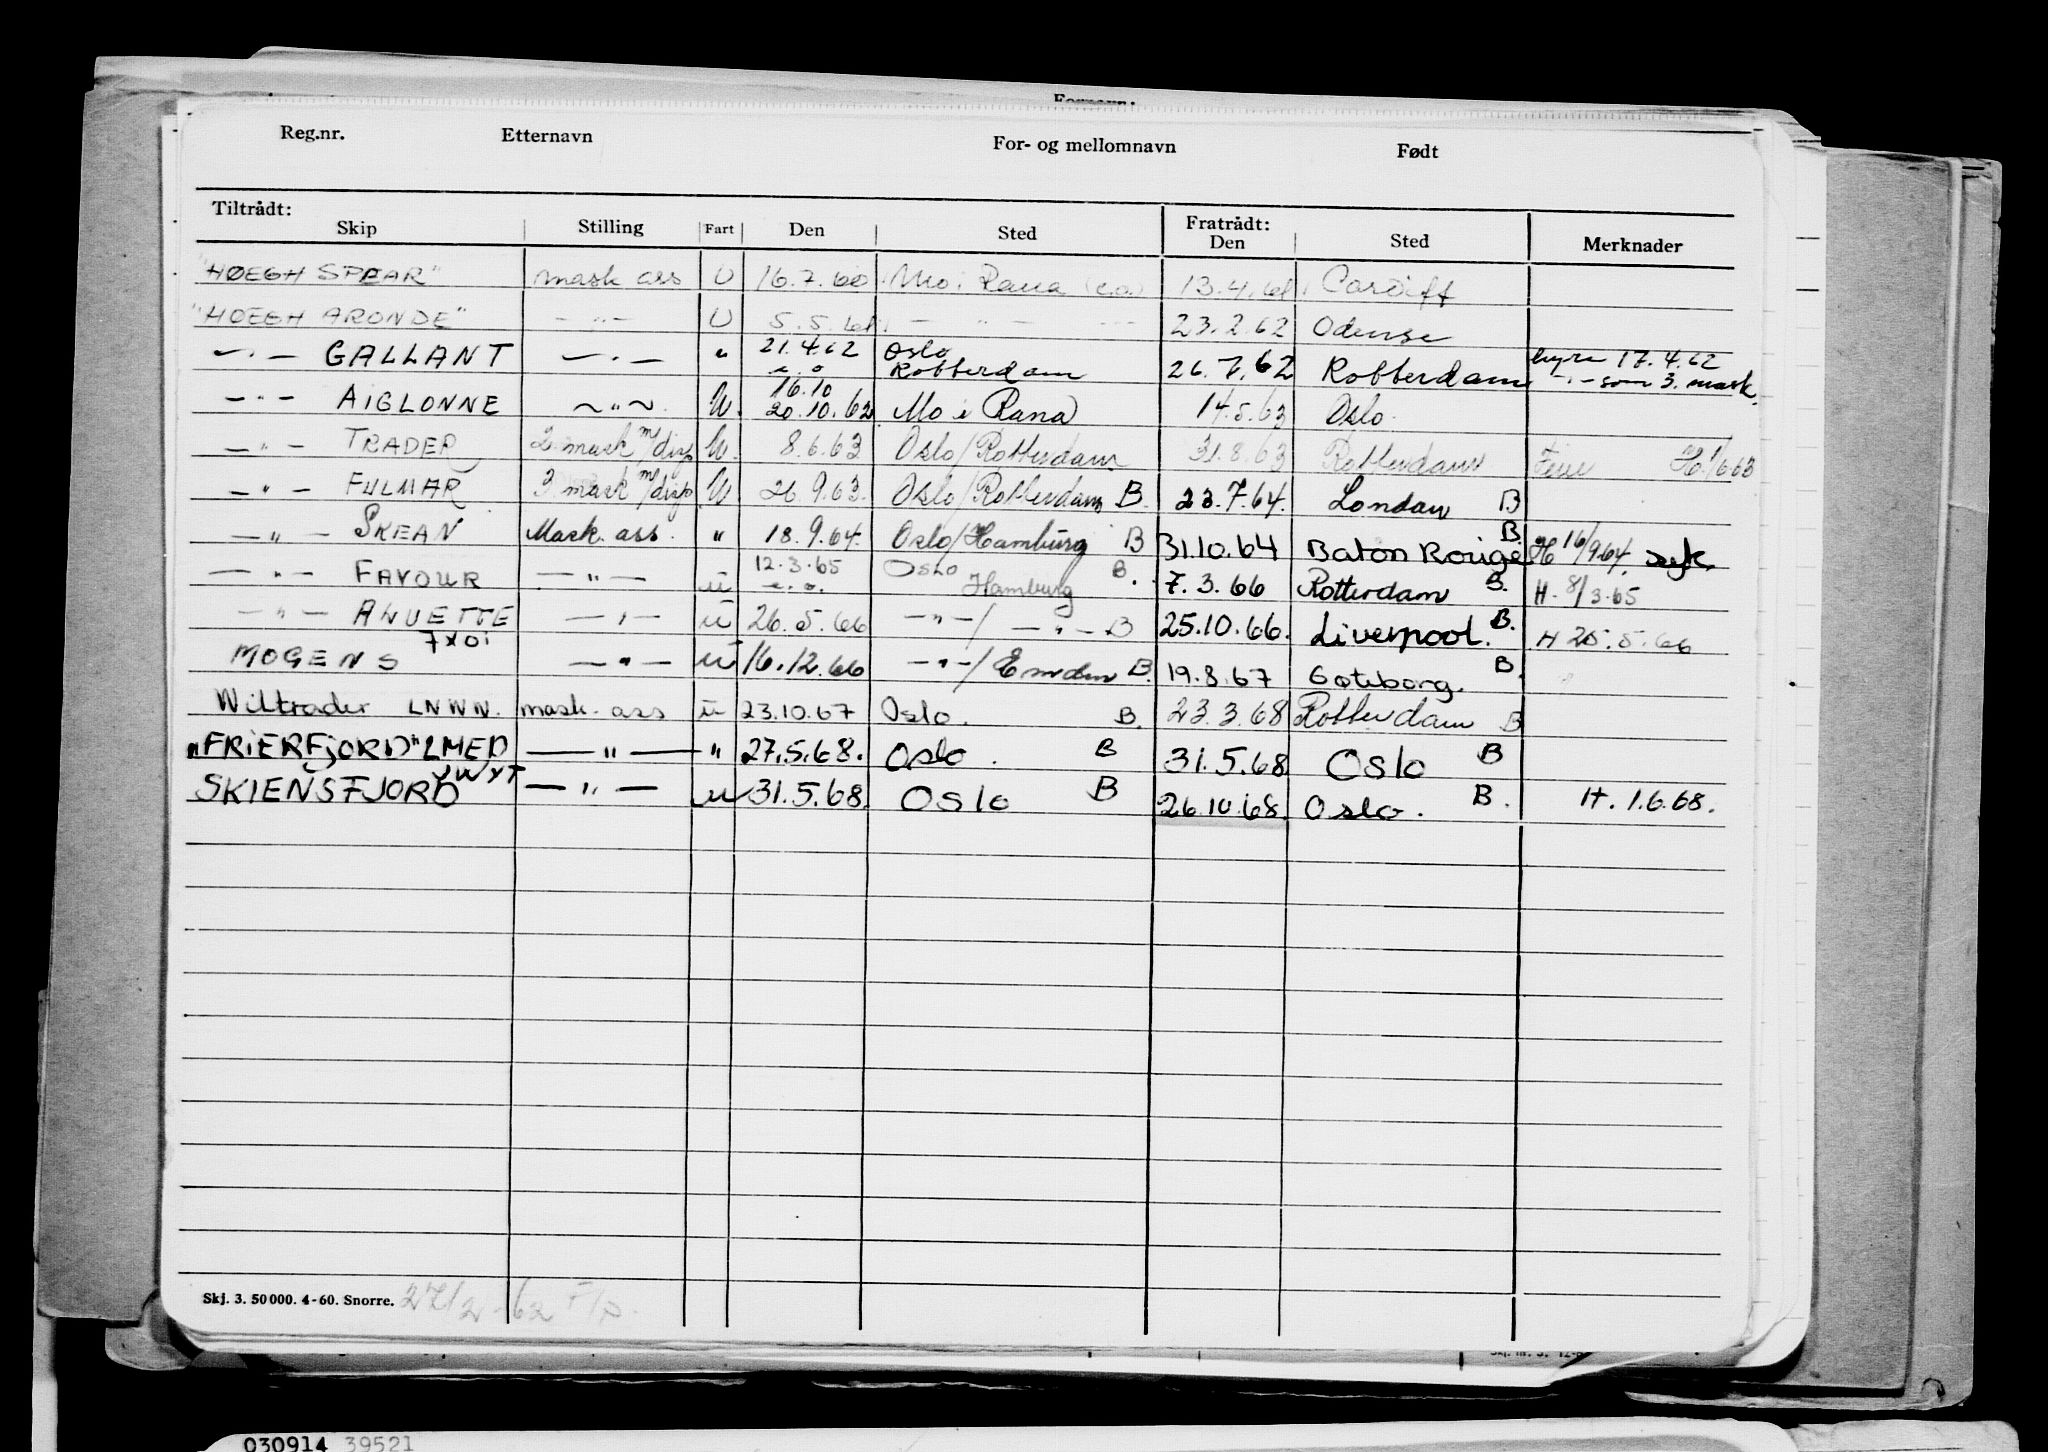 Reg.nr. Etternavn For- og mellomnavn Født
Tiltrådt: Fratrådt:
Skip Stilling Fart Den Sted Den Sted Merknader
"HØEGH SPEAR" mask ass U 16.7.60 Mo i Rana (e.o.) 13.4.61 Cardiff
"HØEGH ARONDE" — " — U 5.5.61 — " — 23.2.62 Odense
— " — GALLANT — " — " 21.4.62 e.o. Oslo Rotterdam 26.7.62 Rotterdam hyre 17.4.62 — " — som 3. mask.
— " — AIGLONNE — " — U. 16.10 20.10.62 Mo i Rana 14.5.63 Oslo.
— " — TRADER 2. mask m/disp U. 8.6.63 Oslo/Rotterdam 31.8.63 Rotterdam Ferie H. 1/6.63
— " — FULMAR 3. mask m/disp U 26.9.63. Oslo/Rotterdam B. 23.7.64. London B
— " — SKEAN Mask. ass. " 18.9.64. Oslo/Hamburg B 31.10.64 Baton Rouge B. H 16/9.64. syk.
— " — FAVOUR — " — ū 12.3.65 e.o. Oslo Hamburg B. 7.3.66 Rotterdam B. H. 8/3.65
— " — ANUETTE — " — ū 26.5.66 — " — / — " — B 25.10.66. Liverpool. B. H 25.5.66
MOGENS 7xoi — " — ū 16.12.66 — " — / Emden B. 19.8.67 Göteborg. B.
Wiltrader LNWN. mask. ass ū 23.10.67 Oslo. B. 23.3.68 Rotterdam B
"FRIERFJORD" LMED — " — " 27.5.68. Oslo. B 31.5.68 Oslo B
SKIENSFJORD JWXT — " — u 31.5.68. Oslo B 26.10.68. Oslo. B. H. 1.6.68.
Skj. 3. 50 000. 4-60. Snorre. 27/2-62
030914 39521